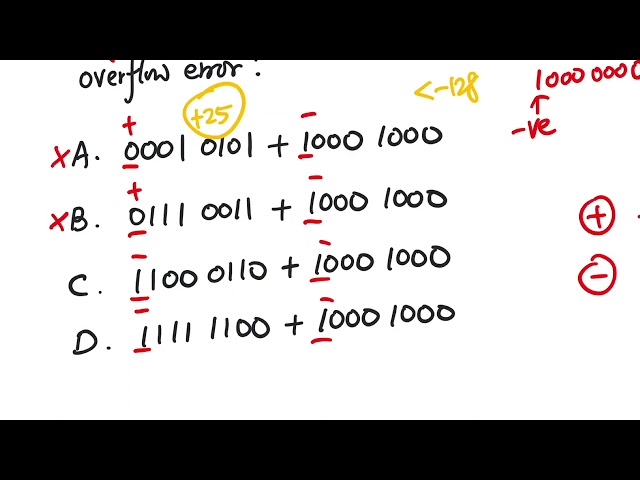 overflow error?
+25
<-128
1000 0000
-ve
+ -
XA. 0001 0101 + 1000 1000
+ -
XB. 0111 0011 + 1000 1000
+
- -
C. 1100 0110 + 1000 1000
-
- -
D. 1111 1100 + 1000 1000